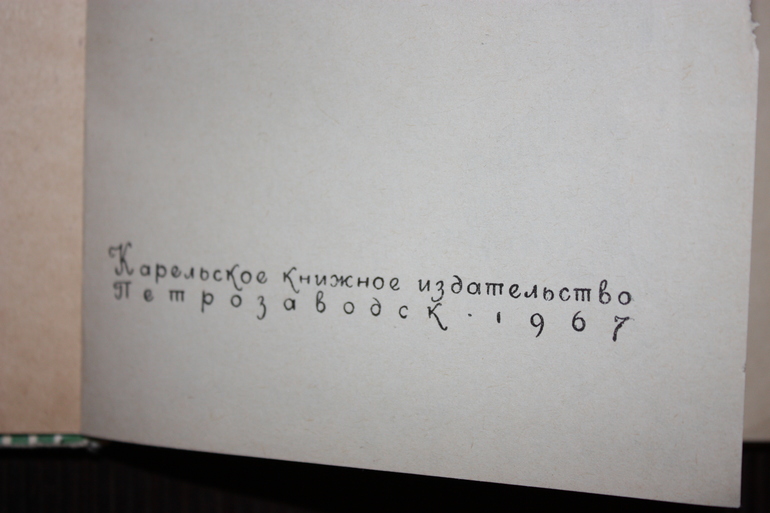 Карельское книжное издательство
Петрозаводск · 1967